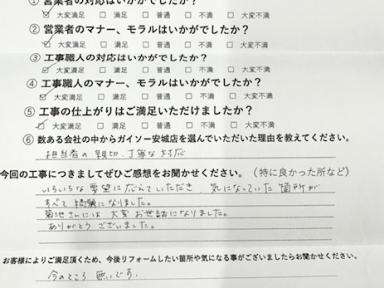 ① 営業者の対応はいかがでしたか?
☑ 大変満足 □ 満足 □ 普通 □ 不満 □ 大変不満
② 営業者のマナー、モラルはいかがでしたか?
☑ 大変満足 □ 満足 □ 普通 □ 不満 □ 大変不満
③ 工事職人の対応はいかがでしたか?
☑ 大変満足 □ 満足 □ 普通 □ 不満 □ 大変不満
④ 工事職人のマナー、モラルはいかがでしたか?
☑ 大変満足 □ 満足 □ 普通 □ 不満 □ 大変不満
⑤ 工事の仕上がりはご満足いただけましたか?
☑ 大変満足 □ 満足 □ 普通 □ 不満 □ 大変不満
⑥ 数ある会社の中からガイソー安城店を選んでいただいた理由を教えてください。
担当者の親切、丁寧な対応
今回の工事につきましてぜひご感想をお聞かせください。(特に良かった所など)
いろいろな要望に応えていただき、気になっていた箇所が
すべて綺麗になりました。
菊池さんには大変お世話になりました。
ありがとうございました。
お客様によりご満足頂くため、今後リフォームしたい箇所や気になる事がございましたらお聞かせください。
今のところ無いです。